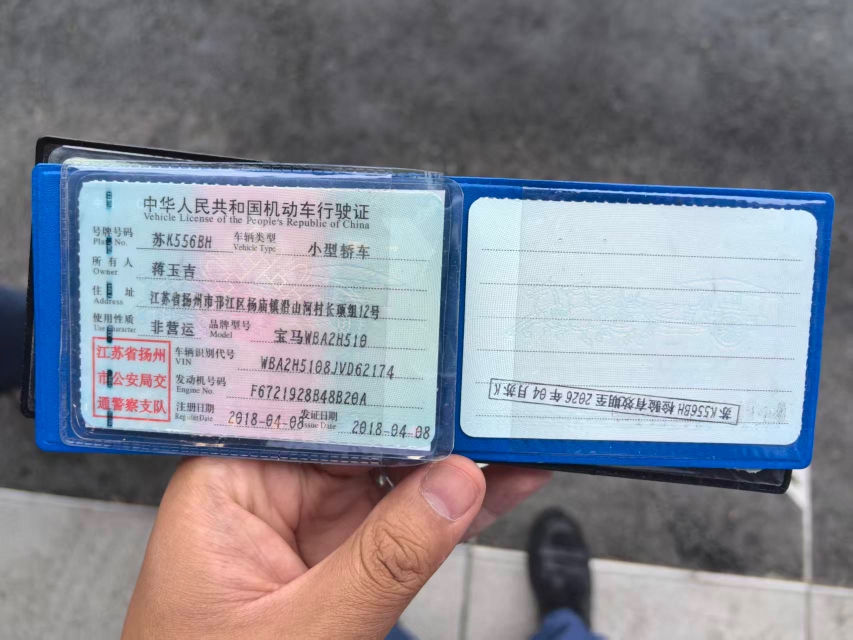 中华人民共和国机动车行驶证
Vehicle License of the People's Republic of China
号牌号码 苏K556BH 车辆类型 小型轿车
Plate No. Vehicle Type
所有人 蒋玉吉
Owner
住址 江苏省扬州市邗江区杨庙镇沿山河村长塬组12号
Address
使用性质 非营运 品牌型号 宝马WBA2H510
Use Character Model
江苏省扬州
市公安局交
通警察支队
车辆识别代号 WBA2H5108JVD62174
VIN
发动机号码 F6721928B48B20A
Engine No.
注册日期 2018-04-08 发证日期 2018-04-08
Register Date Issue Date
苏K556BH 检验有效期至2026年04月苏K